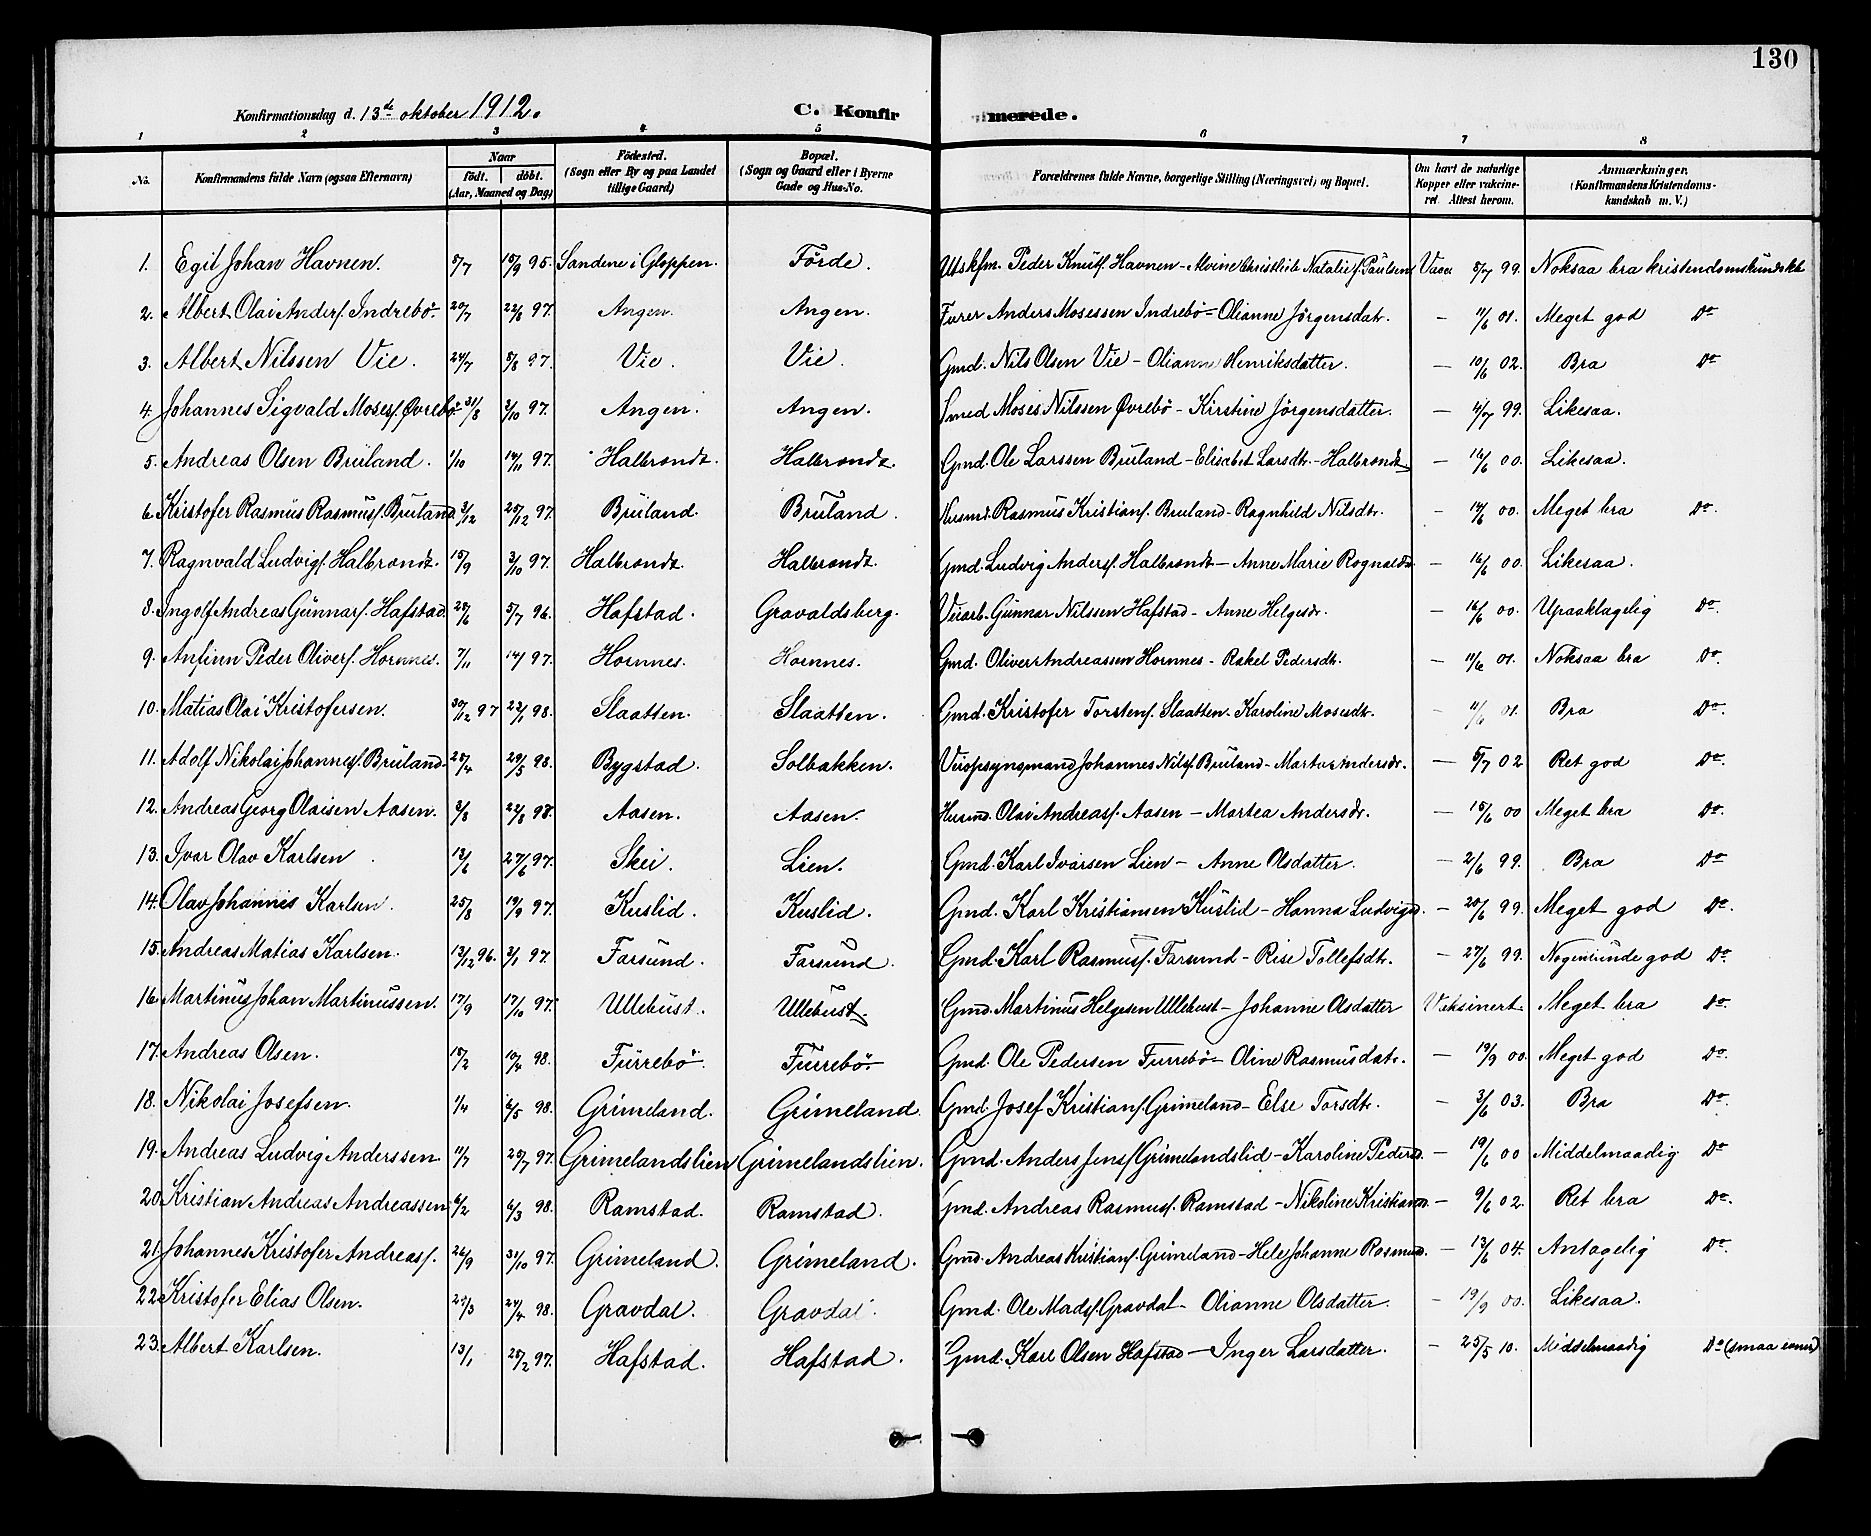 130
Konfirmationsdag d. 13de oktober 1912.
C. Konfirmerede.
1 2 3 4 5 6 7 8
No. Konfirmandens fulde Navn (ogsaa Efternavn) Naar født. døbt. (Aar, Maaned og Dag) Födested. (Sogn eller By og paa Landet tillige Gaard) Bopæl. (Sogn og Gaard eller i Byerne Gade og Hus-No. Forældrenes fulde Navne, borgerlige Stilling (Næringsvei) og Bopæl. Om havt de naturlige Kopper eller vakcineret. Attest herom. Anmærkninger. (Konfirmandens Kristendomskundskab m. V.)
1. Egil Johan Havnen. 5/7 15/9 95. Sandene i Gloppen. Förde. Utskfm. Peder Knuts. Havnen - Alvine Christlieb Natalie f. Paulsen Vacc 5/7 99. Noksaa bra kristendomskundskb
2. Albert Olai Anders. Indrebö. 20/7 22/8 97. Angen. Angen. Furer Anders Mosessen Indrebö - Olianne Jörgensdatr. - 11/6 01. Meget god Do
3. Albert Nilssen Vie. 24/7 5/8 97. Vie. Vie. Gmd. Nils Olsen Vie - Olianne Henriksdatter. - 10/6 02. Bra Do
4. Johannes Sigvald Moses. Øvrebö 31/8 3/10 97. Angen. Angen. Smed Moses Nilssen Øvrebö - Kirstine Jörgensdatter. - 4/7 99. Likesaa.
5. Andreas Olsen Bruland. 1/10 14/11 97. Halbrendt. Halbrendt. Gmd. Ole Larssen Bruland - Elisebet Larsdtr. - Halbrendt - 16/6 00. Likesaa.
6. Kristofer Rasmus Rasmus. Bruland 3/12 25/12 97. Bruland. Bruland. Husmd. Rasmus Kristians. Bruland - Ragnhild Nilsdtr. - 14/6 00. Meget bra Do.
7. Ragnvald Ludvigs. Halbrendt. 15/9 3/10 97. Halbrendt. Halbrendt. Gmd. Ludvig Anders. Halbrendt - Anne Marie Rognaldsd. - 16/6 00. Likesaa.
8. Ingolf Andreas Gunnars. Hafstad. 28/6 5/7 96. Hafstad. Gravaldsberg. Veiarb. Gunnar Nilssen Hafstad - Anne Helgesdr. - 16/6 00. Upaaklagelig Do.
9. Anfinn Peder Olivers. Hornnes. 7/11 14/ 97. Hornnes. Hornnes. Gmd. Oliver Andreassen Hornnes - Rakel Pedersdtr. - 11/6 01. Noksaa bra Do.
10. Matias Olai Kristofersen. 30/12 97 22/1 98. Slaatten. Slaatten. Gmd. Kristofer Torstens. Slaatten. Karoline Mosesdtr. - 11/6 01. Bra Do.
11. Adolf Nikolai Johannes. Bruland. 28/4 29/5 98. Bygstad. Solbakken. Veiopsynsmand Johannes Nils. Bruland - Marta Andersdr. - 5/7 02 Ret god Do.
12. Andreas Georg Olaisen Aasen. 3/8 22/8 98. Aasen. Aasen. Husmd. Olai Andreas. Aasen - Martea Andersdr. - 15/6 00 Meget bra Do.
13. Ivar Olav Karlsen 13/6 27/6 97. Skei. Lien. Gmd. Karl Ivarsen Lien - Anne Olsdatter. - 2/6 99. Bra Do
14. Olav Johannes Karlsen. 25/8 19/9 97. Kuslid. Kuslid. Gmd. Karl Kristiansen Kuslid - Hanna Ludvigsd. - 20/6 99. Meget god Do.
15. Andreas Matias Karlsen. 13/12 96. 3/1 97. Farsund. Farsund. Gmd. Karl Rasmus. Farsund - Rise Tollefsdtr. - 27/6 99. Nogenlunde god Do.
16. Martinus Johan Martinussen. 17/9 17/10 97. Ullebust. Ullebust. Gmd. Martinus Helgesen Ullebust - Johanne Olsdatter Vaksinert. Meget bra Do.
17. Andreas Olsen. 15/2 10/4 98. Furrebö. Furrebö. Gmd. Ole Pedersen Furrebö - Oline Rasmusdatr. - 19/9 00. Meget god Do.
18. Nikolai Josefsen. 1/4 6/5 98. Grimeland. Grimeland. Gmd. Josef Kristians. Grimeland - Else Torsdtr. - 3/6 03. Bra Do.
19. Andreas Ludvig Anderssen. 11/7 20/7 97. Grimelandslien Grimelandslien. Gmd. Anders Jens. Grimelandslid - Karoline Pedersd. - 19/6 00 Middelmaadig Do
20. Kristian Andreas Andreassen 6/2 6/3 98. Ramstad. Ramstad. Gmd. Andreas Rasmus. Ramstad - Nikoline Kristiansd. - 9/6 02. Ret bra Do.
21. Johannes Kristofer Andreas. 26/9 31/10 97. Grimeland. Grimeland. Gmd. Andreas Kristians. Grimeland - Hele Johanne Rasmusd. - 13/6 04. Antagelig Do.
22. Kristofer Elias Olsen. 25/3 24/4 98. Gravdal. Gravdal. Gmd. Ole Mads. Gravdal - Olianne Olsdatter. - 19/9 00. Likesaa.
23. Albert Karlsen. 13/1 28/2 97. Hafstad. Hafstad. Gmd. Karl Olsen Hafstad - Inger Larsdatter. - 25/5 10. Middelmaadig Do (smaa evner)